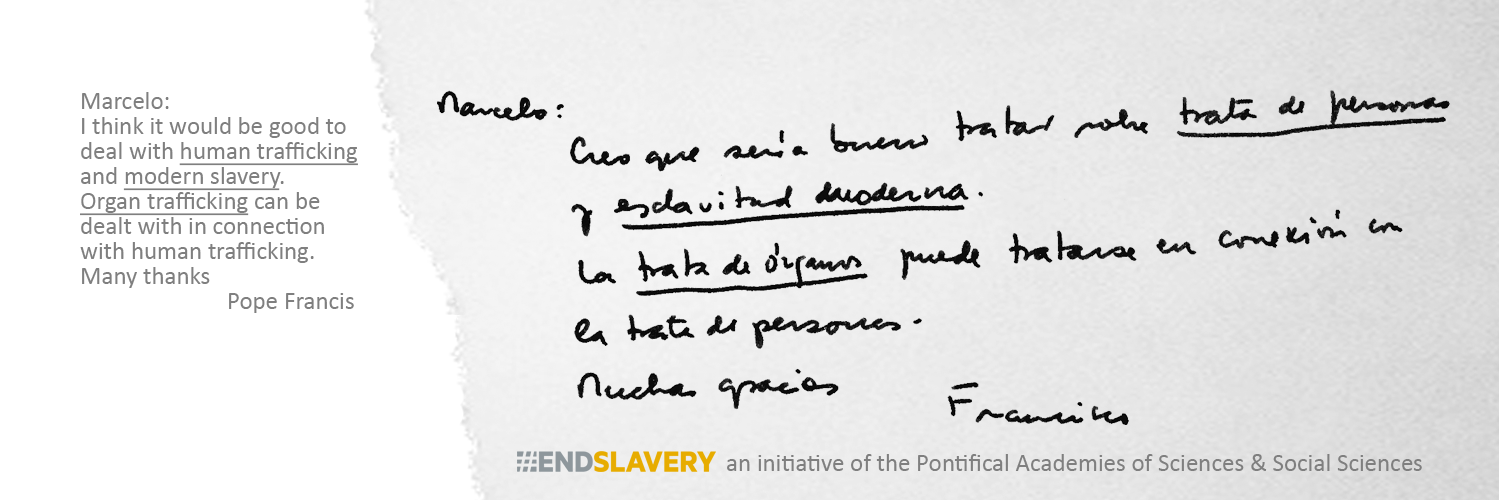 Marcelo:
I think it would be good to
deal with human trafficking
and modern slavery.
Organ trafficking can be
dealt with in connection
with human trafficking.
Many thanks
Pope Francis
Marcelo:
Creo que sería bueno tratar sobre trata de personas
y esclavitud moderna.
La trata de órganos puede tratarse en conexión con
la trata de personas.
Muchas gracias
Francisco
#ENDSLAVERY an initiative of the Pontifical Academies of Sciences & Social Sciences